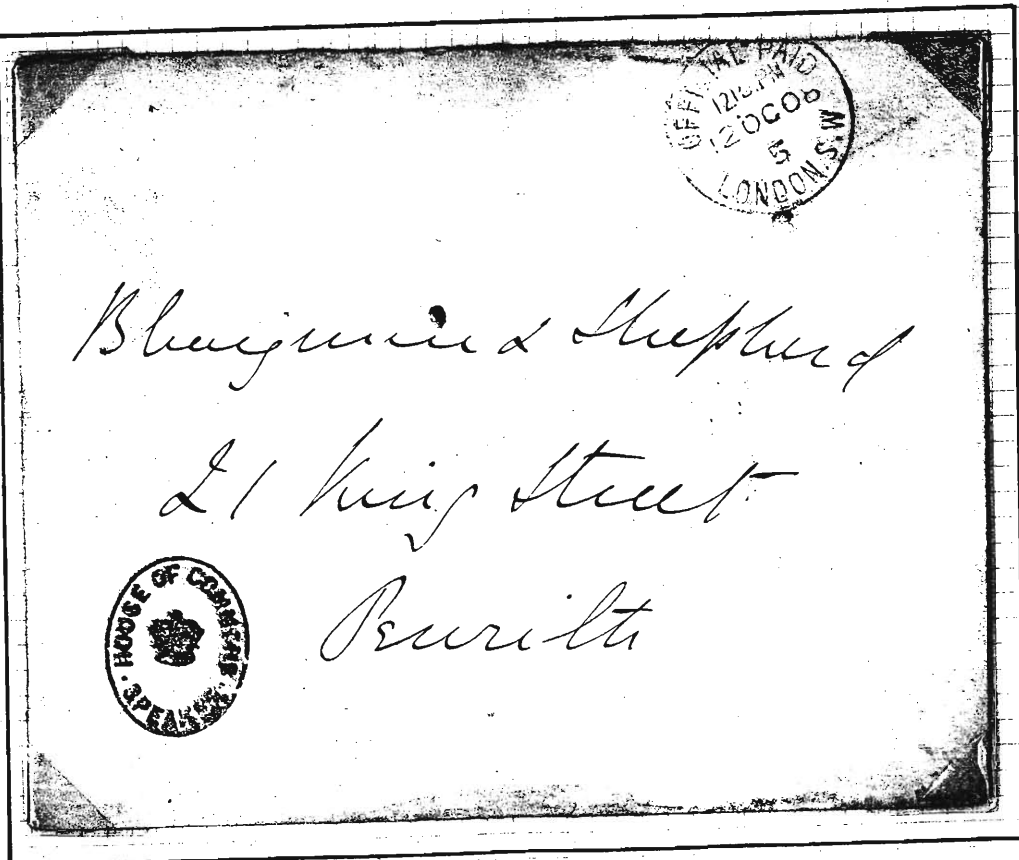 OFFICIAL PAID
1215 PM
12 OC 06
5
LONDON. S.W
& Shepherd
21 King Street
Penrith
HOUSE OF COMMONS
SPEAKER